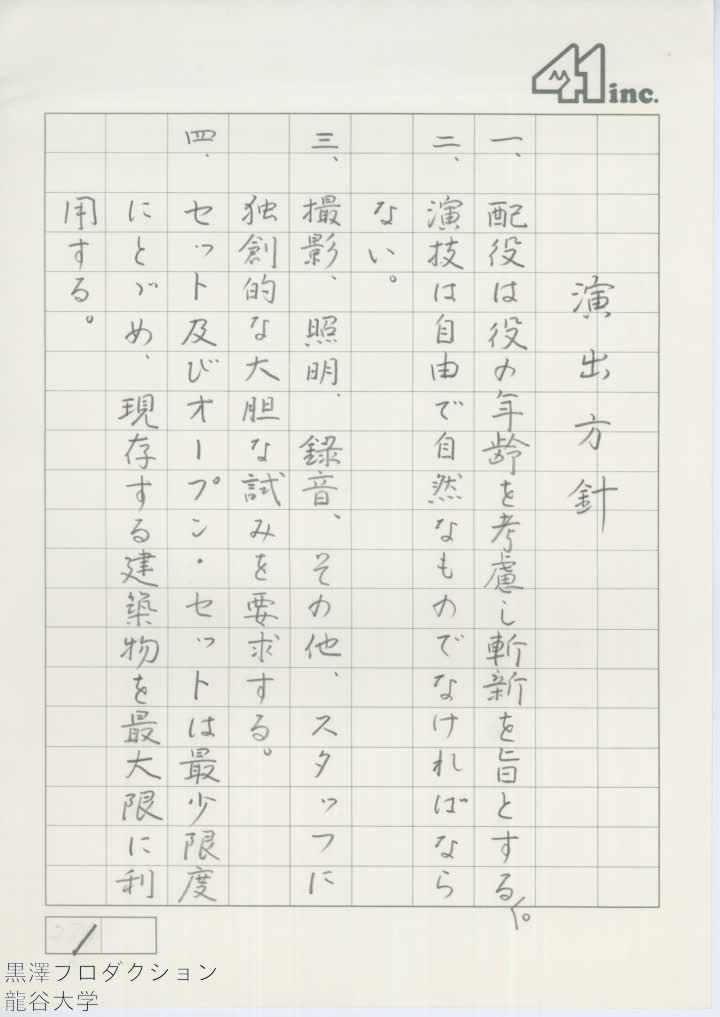 41 inc.
演出方針
一、配役は役の年齢を考慮し斬新を旨とする。
二、演技は自由で自然なものでなければなら
ない。
三、撮影、照明、録音、その他、スタッフに
独創的な大胆な試みを要求する。
四、セット及びオープン・セットは最少限度
にとゞめ、現存する建築物を最大限に利
用する。
1
黒澤プロダクション
龍谷大学